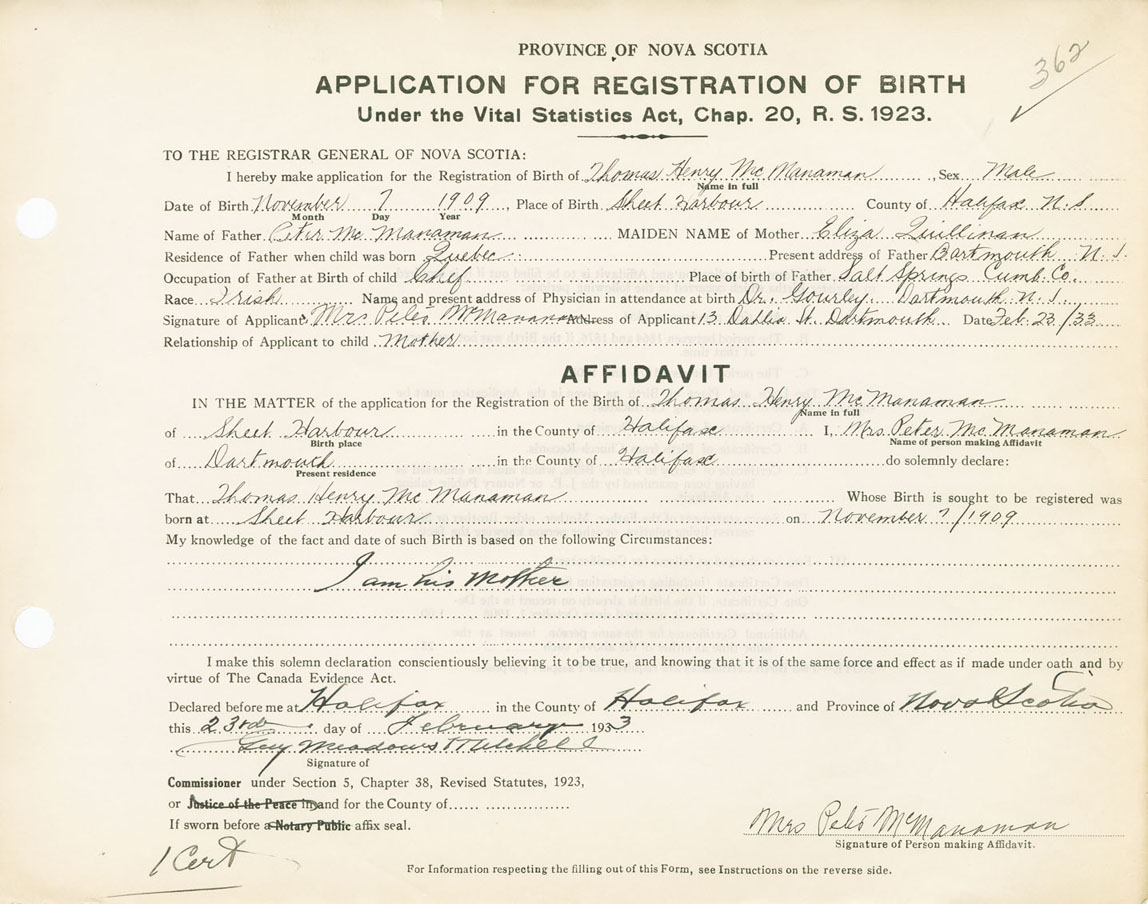 PROVINCE OF NOVA SCOTIA
362
APPLICATION FOR REGISTRATION OF BIRTH
Under the Vital Statistics Act, Chap. 20, R. S. 1923.
TO THE REGISTRAR GENERAL OF NOVA SCOTIA:
I hereby make application for the Registration of Birth of Thomas Henry McManaman, Sex Male
Name in full
Date of Birth November 7 1909, Place of Birth Sheet Harbour County of Halifax N.S
Month Day Year
Name of Father Peter McManaman MAIDEN NAME of Mother Eliza Quillinan
Residence of Father when child was born Quebec Present address of Father Dartmouth N.S.
Occupation of Father at Birth of child Place of birth of Father Salt Springs Cumb. Co.
Race Irish Name and present address of Physician in attendance at birth Dr. Gourley. Dartmouth N.S.
Signature of Applicant Mrs Peter McManaman Address of Applicant 13 Dahlia St. Dartmouth Date Feb. 23/33
Relationship of Applicant to child Mother
AFFIDAVIT
IN THE MATTER of the application for the Registration of the Birth of Thomas Henry McManaman
Name in full
of Sheet Harbour in the County of Halifax I, Mrs. Peter McManaman
Birth place Name of person making Affidavit
of Dartmouth in the County of Halifax do solemnly declare:
Present residence
That Thomas Henry McManaman Whose Birth is sought to be registered was
born at Sheet Harbour on November 7/1909
My knowledge of the fact and date of such Birth is based on the following Circumstances:
I am his Mother
I make this solemn declaration conscientiously believing it to be true, and knowing that it is of the same force and effect as if made under oath and by
virtue of The Canada Evidence Act.
Declared before me at Halifax in the County of Halifax and Province of Nova Scotia
this 23rd day of February 1933
Guy Meadows Mitchell
Signature of
Commissioner under Section 5, Chapter 38, Revised Statutes, 1923,
or Justice of the Peace in and for the County of
If sworn before a Notary Public affix seal.
Mrs Peter McManaman
Signature of Person making Affidavit.
1 Cert
For Information respecting the filling out of this Form, see Instructions on the reverse side.